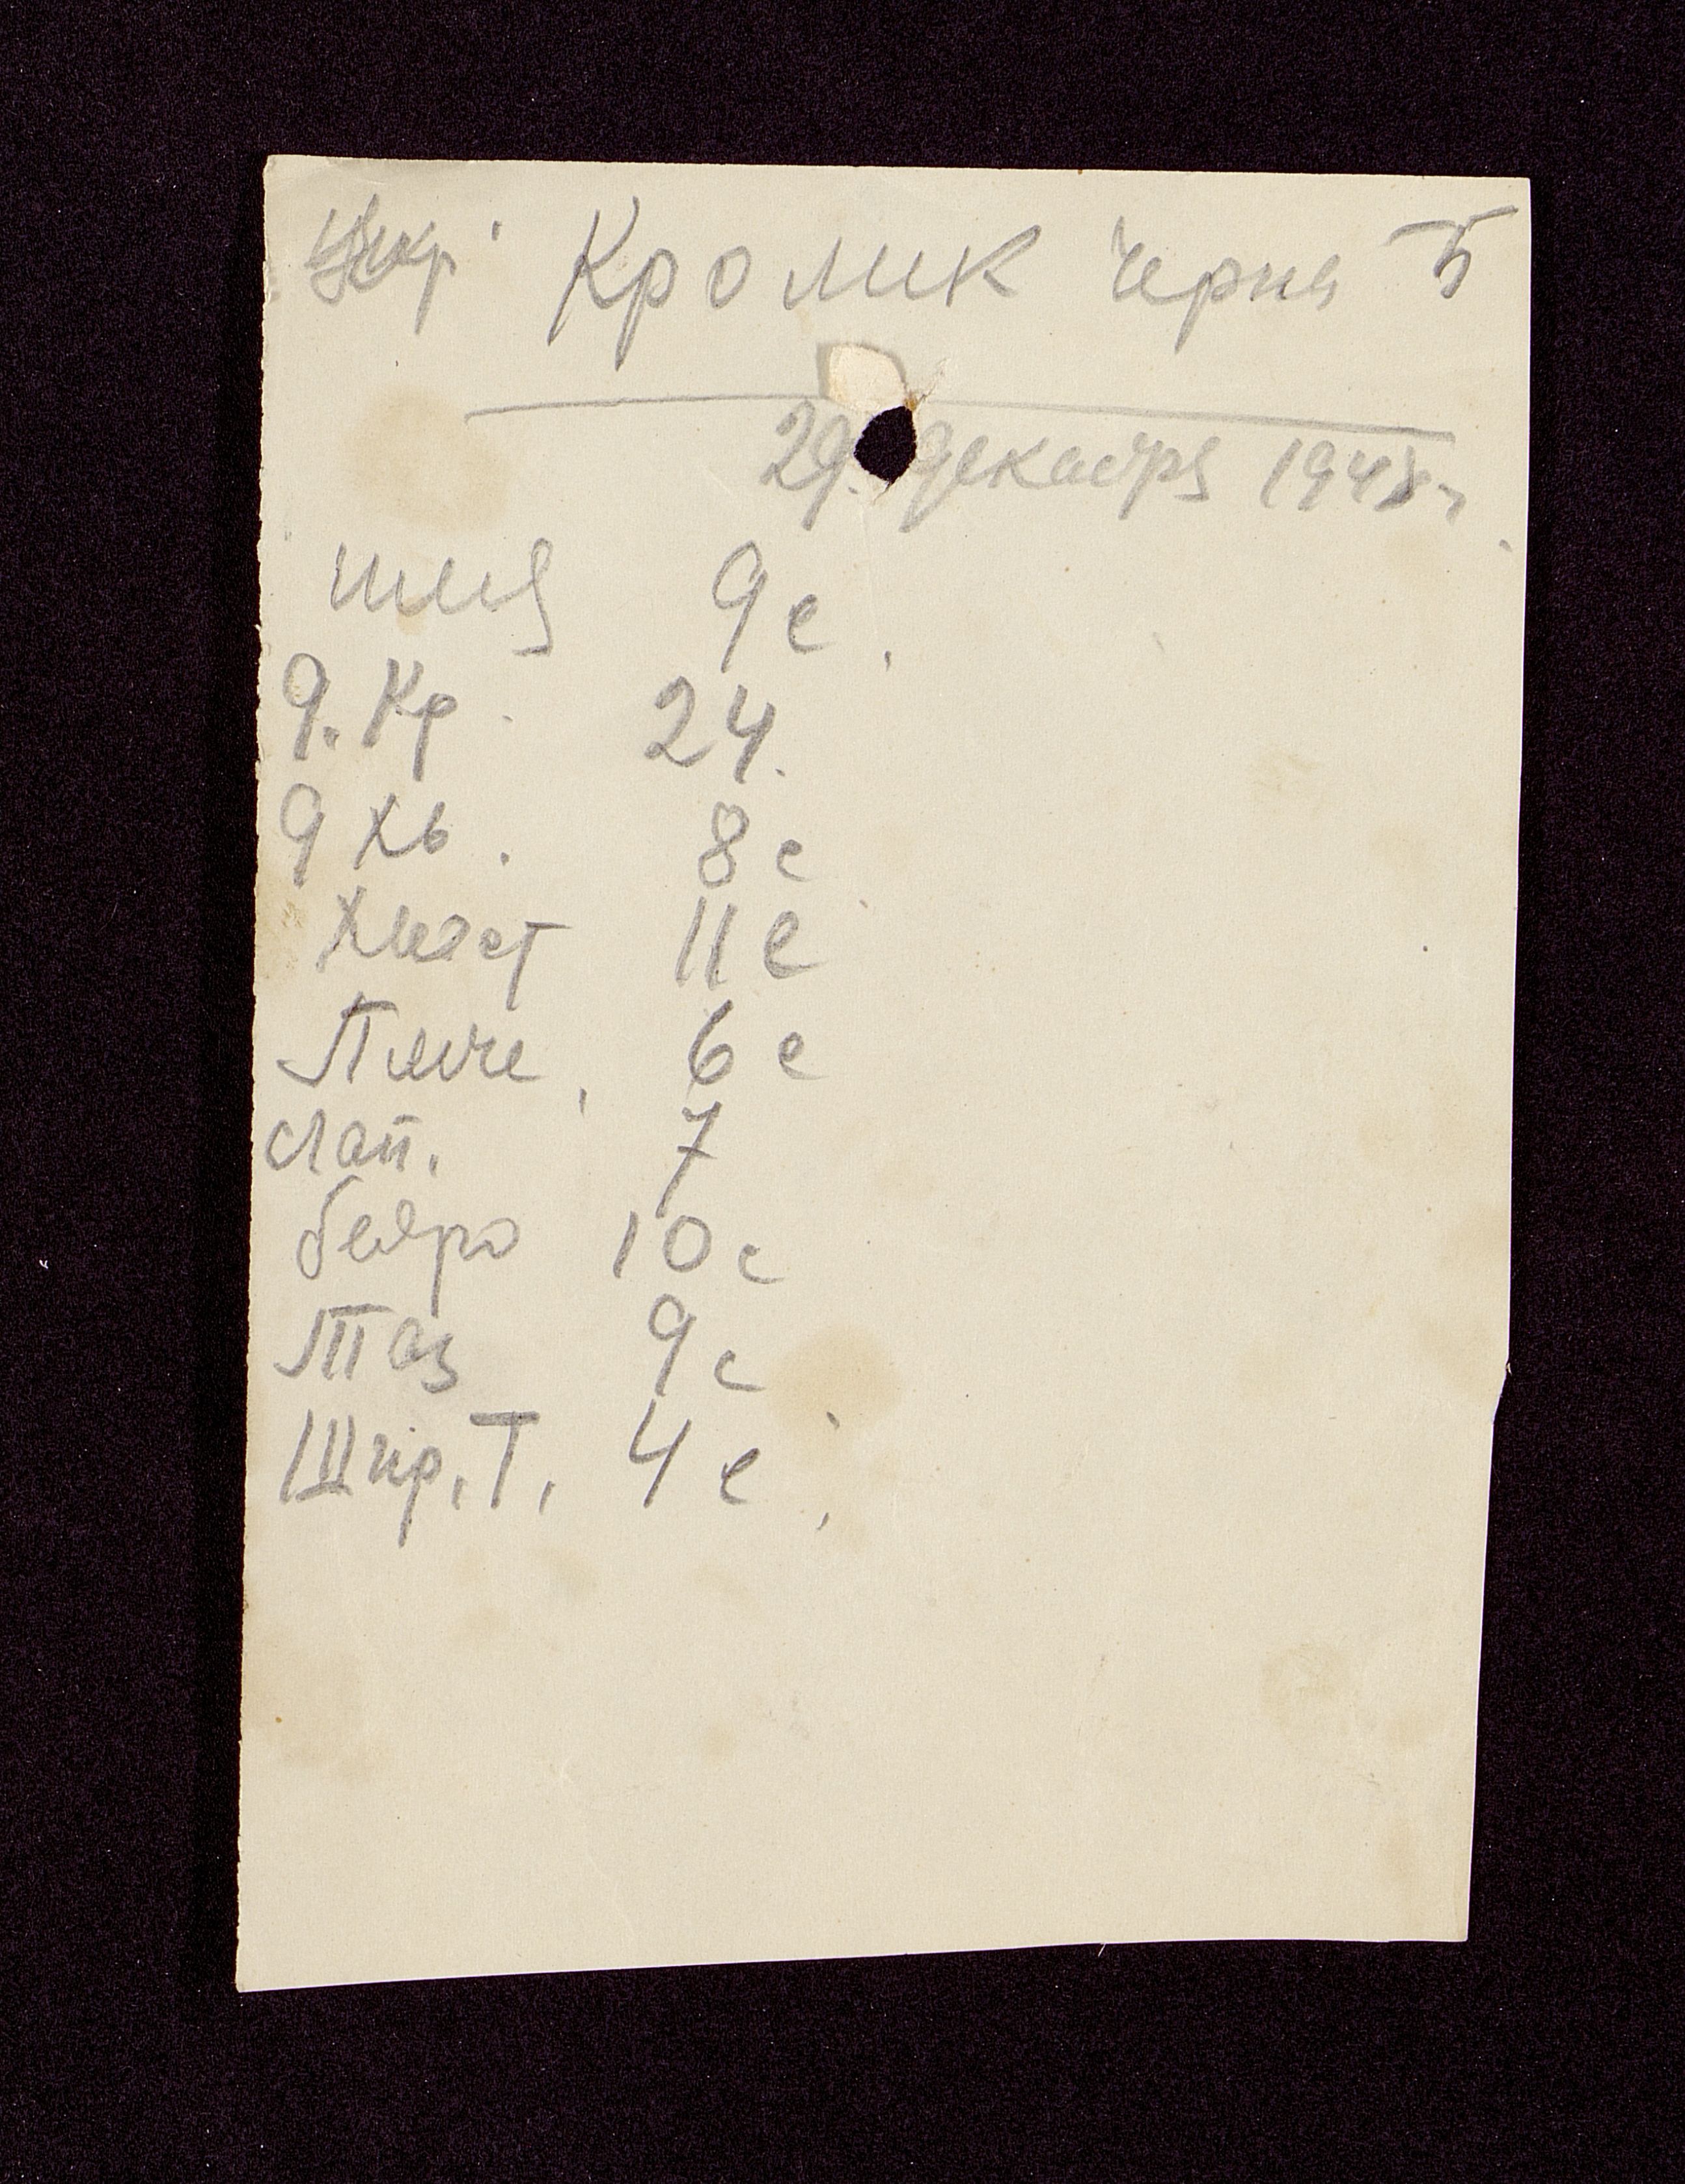 Кролик черн
29. декабря 1948 г
шея 9 с.
д. кр. 24.
д хв. 8 с
хвост 11 с
Плече, 6 с
лап. 7
бедро 10 с
Таз 9 с
Шкр. Т. 4 с.